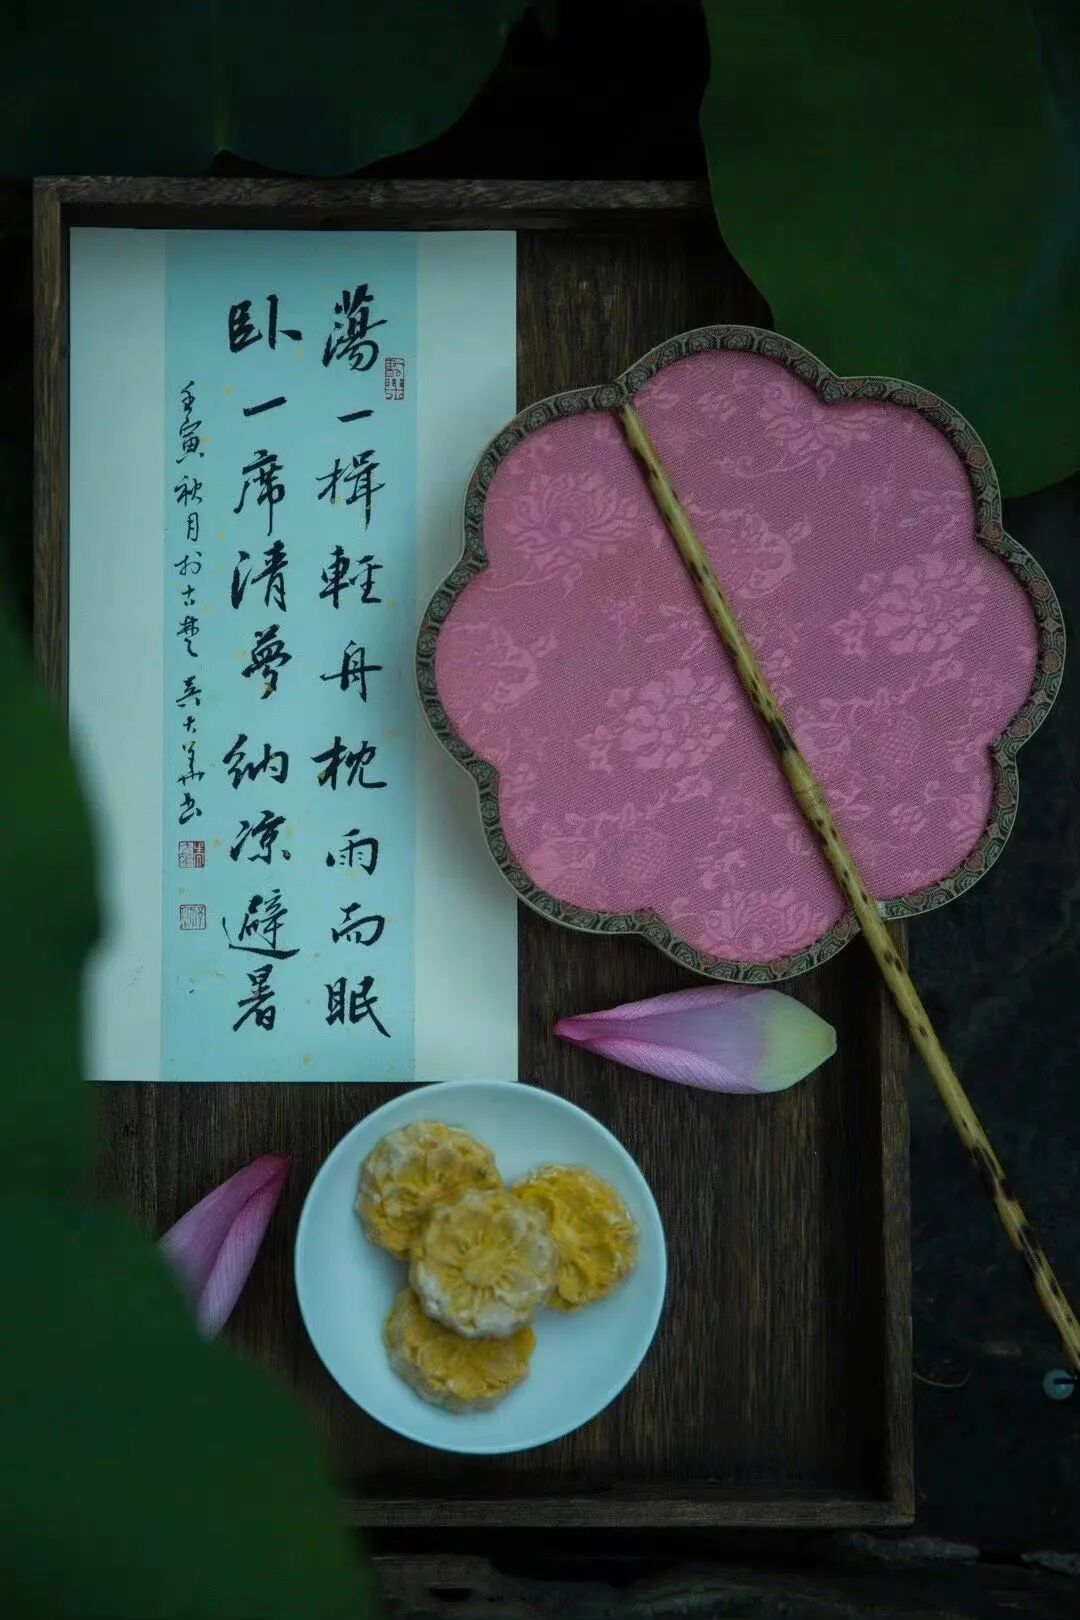 蕩一楫輕舟枕雨而眠
卧一席清夢納凉避暑
壬寅秋月於古楚吳大華书